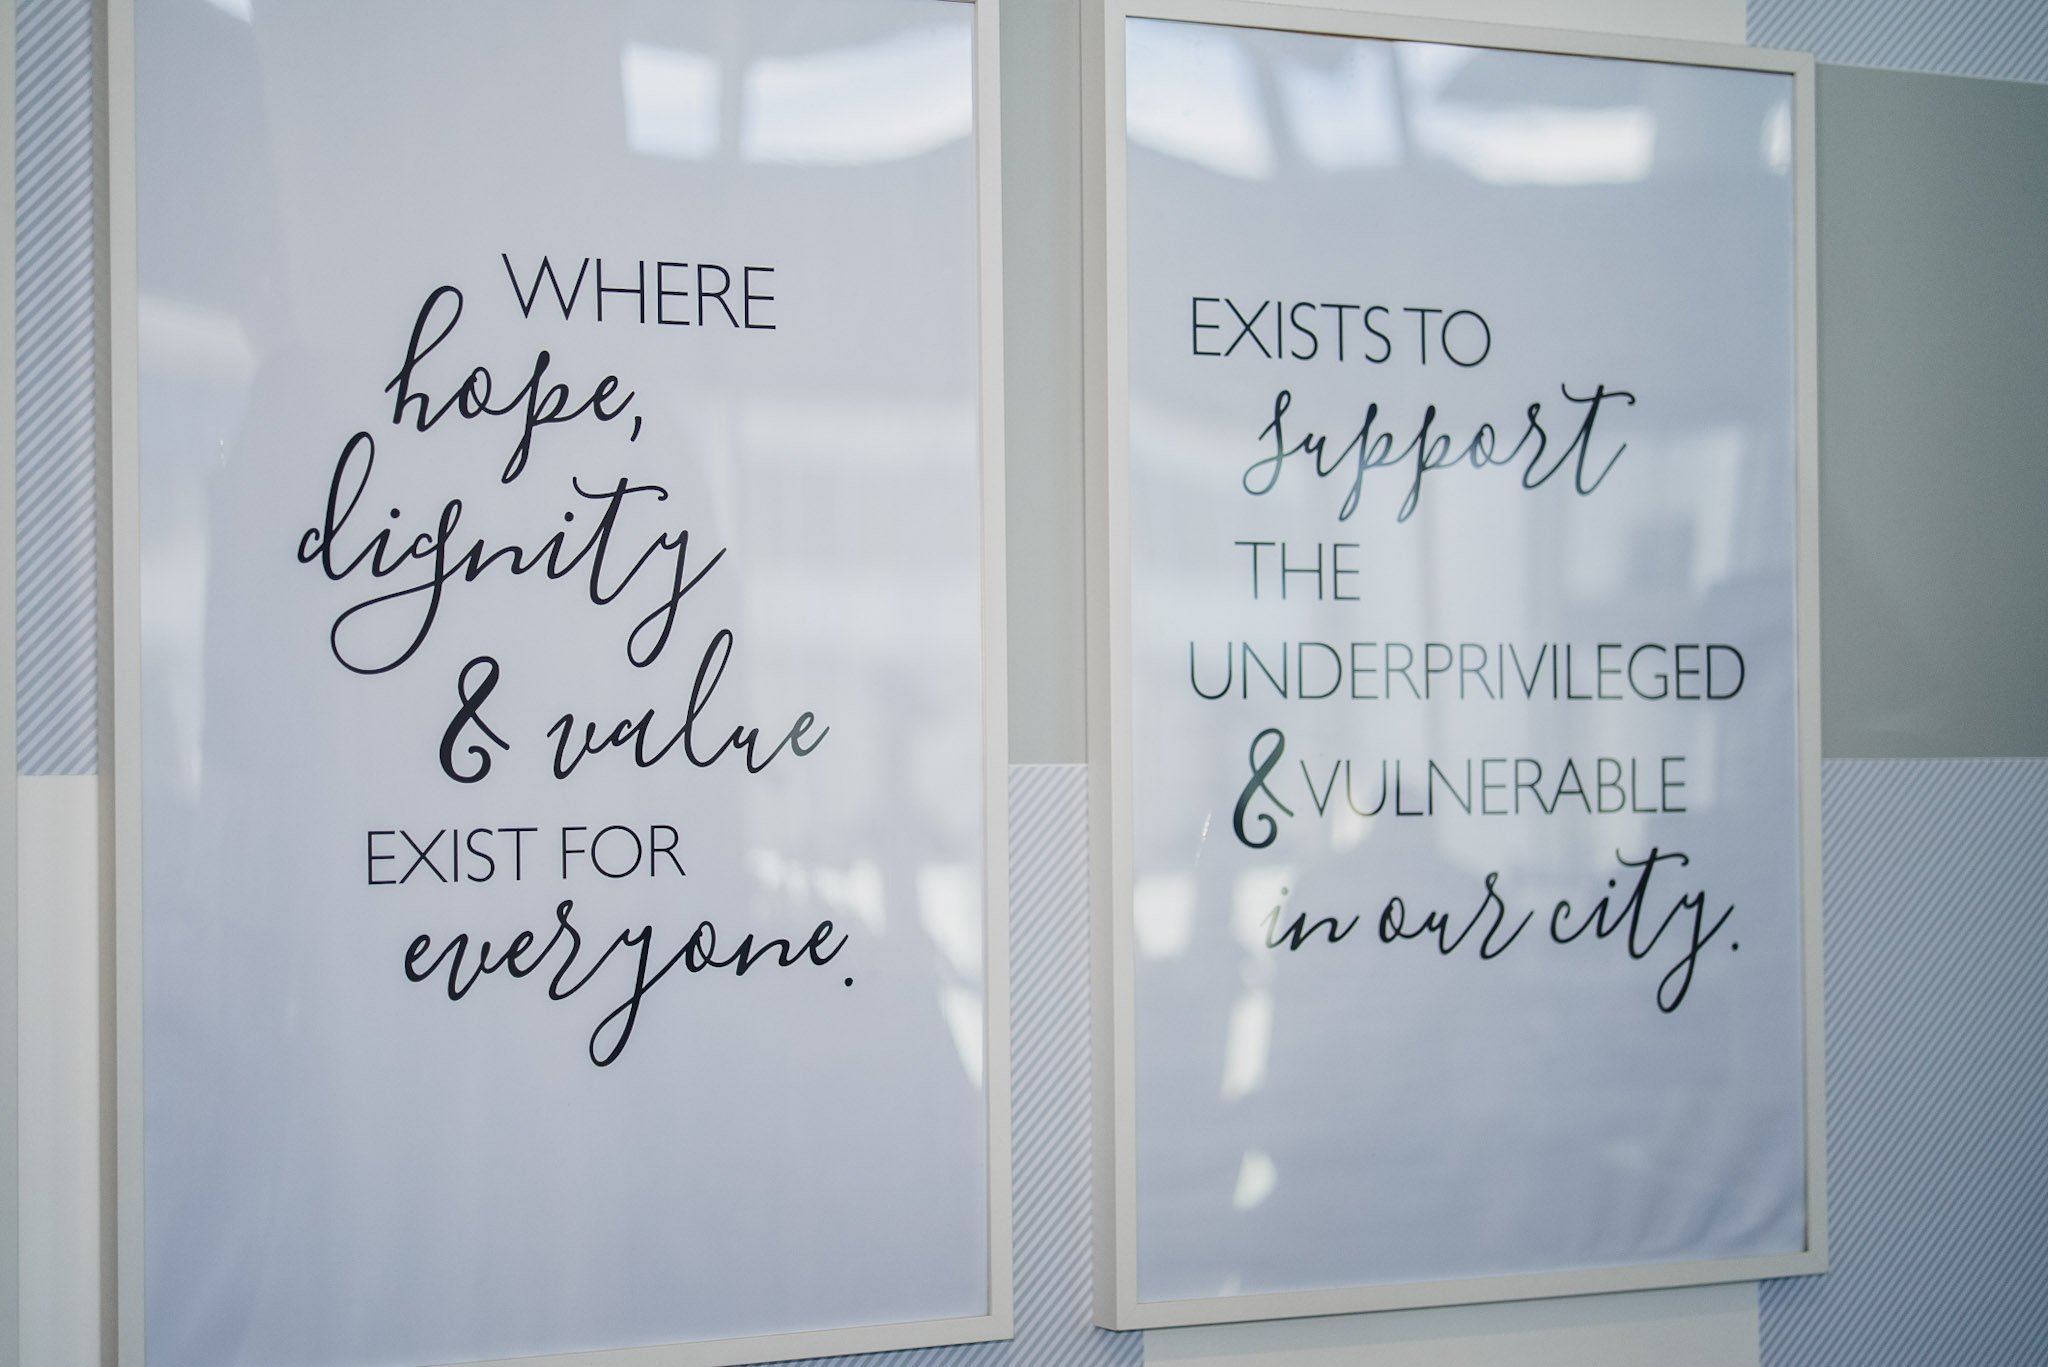 WHERE
hope,
dignity
& value
EXIST FOR
everyone.
EXISTS TO
support
THE
UNDERPRIVILEGED
& VULNERABLE
in our city.